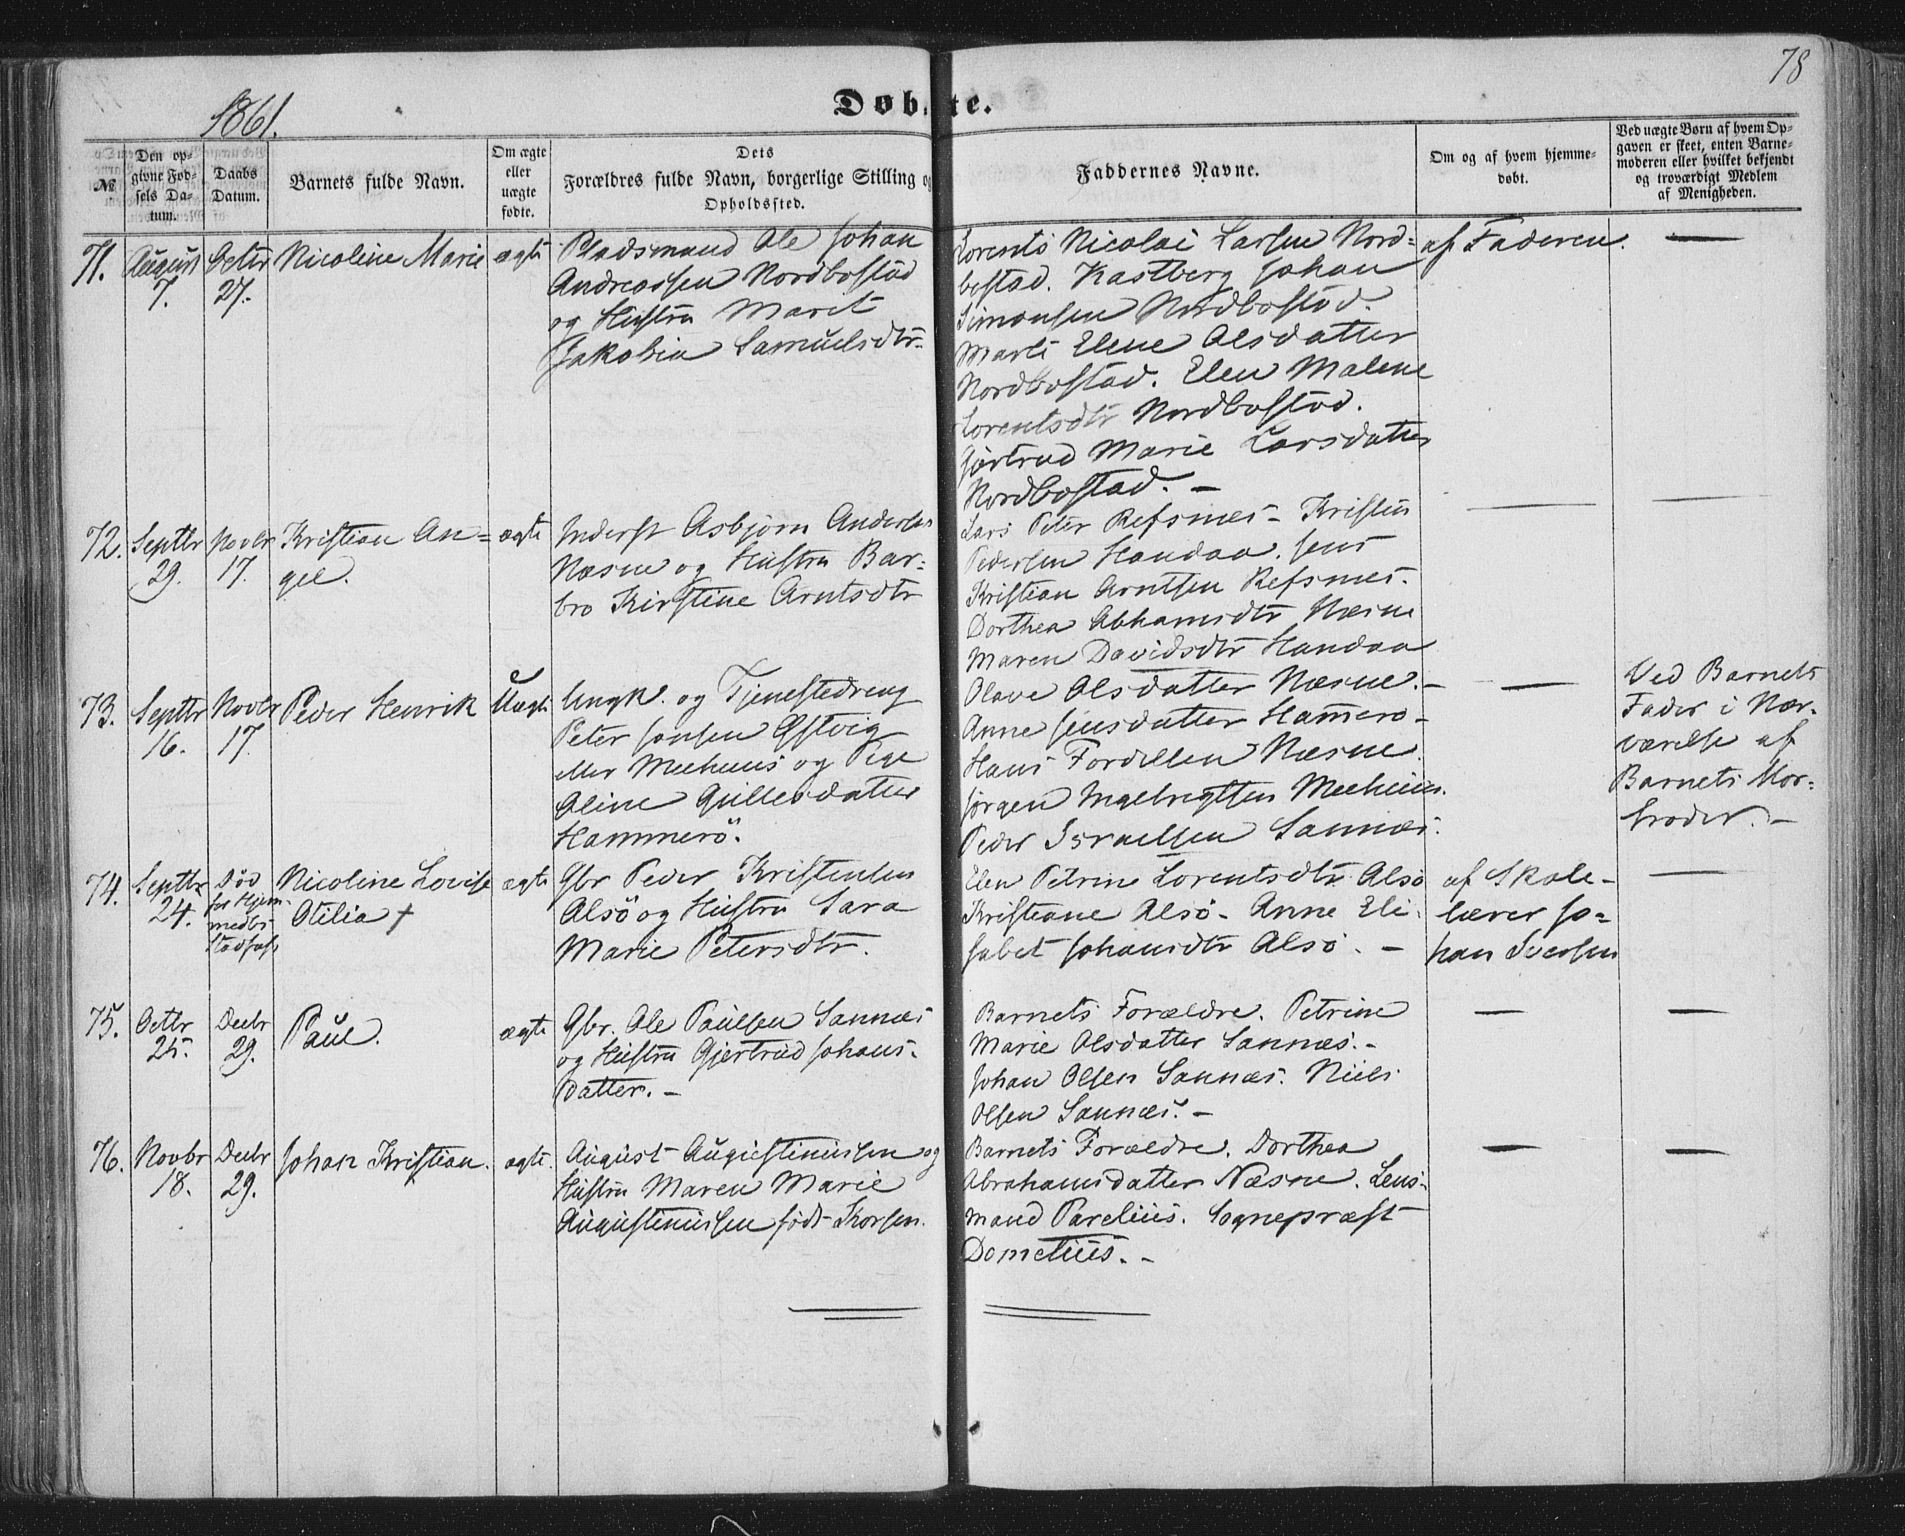 78
1861.
Døbte.
№
Den op-
givne Fød-
sels Da-
tum.
Daabs
Datum.
Barnets fulde Navn.
Om ægte
eller
uægte
fødte.
Dets
Forældres fulde Navn, borgerlige Stilling og
Opholdssted.
Faddernes Navne.
Om og af hvem hjemme-
døbt.
Ved uægte Børn af hvem Op-
gaven er skeet, enten Barne-
moderen eller hvilket bekjendt
og troværdigt Medlem
af Menigheden.
71.
August
7.
Octbr
27.
Nicoline Marie
ægte
Pladsmand Ole Johan
Andreassen Nordbostad
og Hustru Marit
Jakobia Samuelsdtr.
Lorents Nicolai Larsen Nord-
bostad. Kastberg Johan
Simonsen Nordbostad.
Marti Elene Olsdatter
Nordbostad. Elen Malene
Lorentsdtr Nordbostad.
Gjertrud Marie Larsdatter
Nordbostad. –
af Faderen.
—
72.
Septbr
29.
Novbr
17.
Kristian An-
gel.
ægte
Inderst Asbjørn Andersen
Næsne og Hustru Bar-
bro Kirstine Arntsdtr
Lars Peter Refsnes – Kristen
Pedersen Handaa. Jens
Kristian Arntsen Refsnes.
Dorthea Abhamsdtr Næsne
Maren Davidsdtr Handaa
—
—
73.
Septbr
16.
Novbr
17.
Peder Henrik
Uægte
Ungk. og Tjenestedreng
Peter Jonsen
eller og Pige
Oline Gullesdatter
Hammerö.
Olave Olsdatter Næsne. –
Anne Jensdatter Hamerö –
Hans Næsne.
Jørgen Ingebrigtsen
Peder Israelsen Sannæs.
—
Ved Barnets
Fader i Nær-
værelse af
Barnets Mor-
broder. –
74.
Septbr
24.
Død
før Hjem-
medbs
Stadfæs
Nicoline Lovise
Otilia †
ægte
Gbr Peder Kristensen
Alsö og Hustru Sara
Marie Petersdtr.
Elen Petrine Lorentsdtr Alsö
Kristiane Alsö – Anne Eli-
sabet Johansdtr Alsö. –
af Skole-
lærer Jo-
han Iversen
—
75.
Octbr
25.
Decbr
29.
Paul.
ægte
Gbr. Ole Paulsen Sannæs
og Hustru Gjertrud Johans-
datter. –
Barnets Forældre. Petrine
Marie Olsdatter Sannæs. –
Johan Olsen Sannæs. Niels
Olsen Sannæs. –
—
—
76.
Novbr
18.
Decbr
29.
Johan Kristian.
ægte.
August Augustinussen og
Hustru Maren Marie
Augustinussen født Korsen.
Barnets Forældre. Dorthea
Abrahamsdatter Næsne. Lens-
mand Parelius. Sognepræst
Dometius. –
—
—